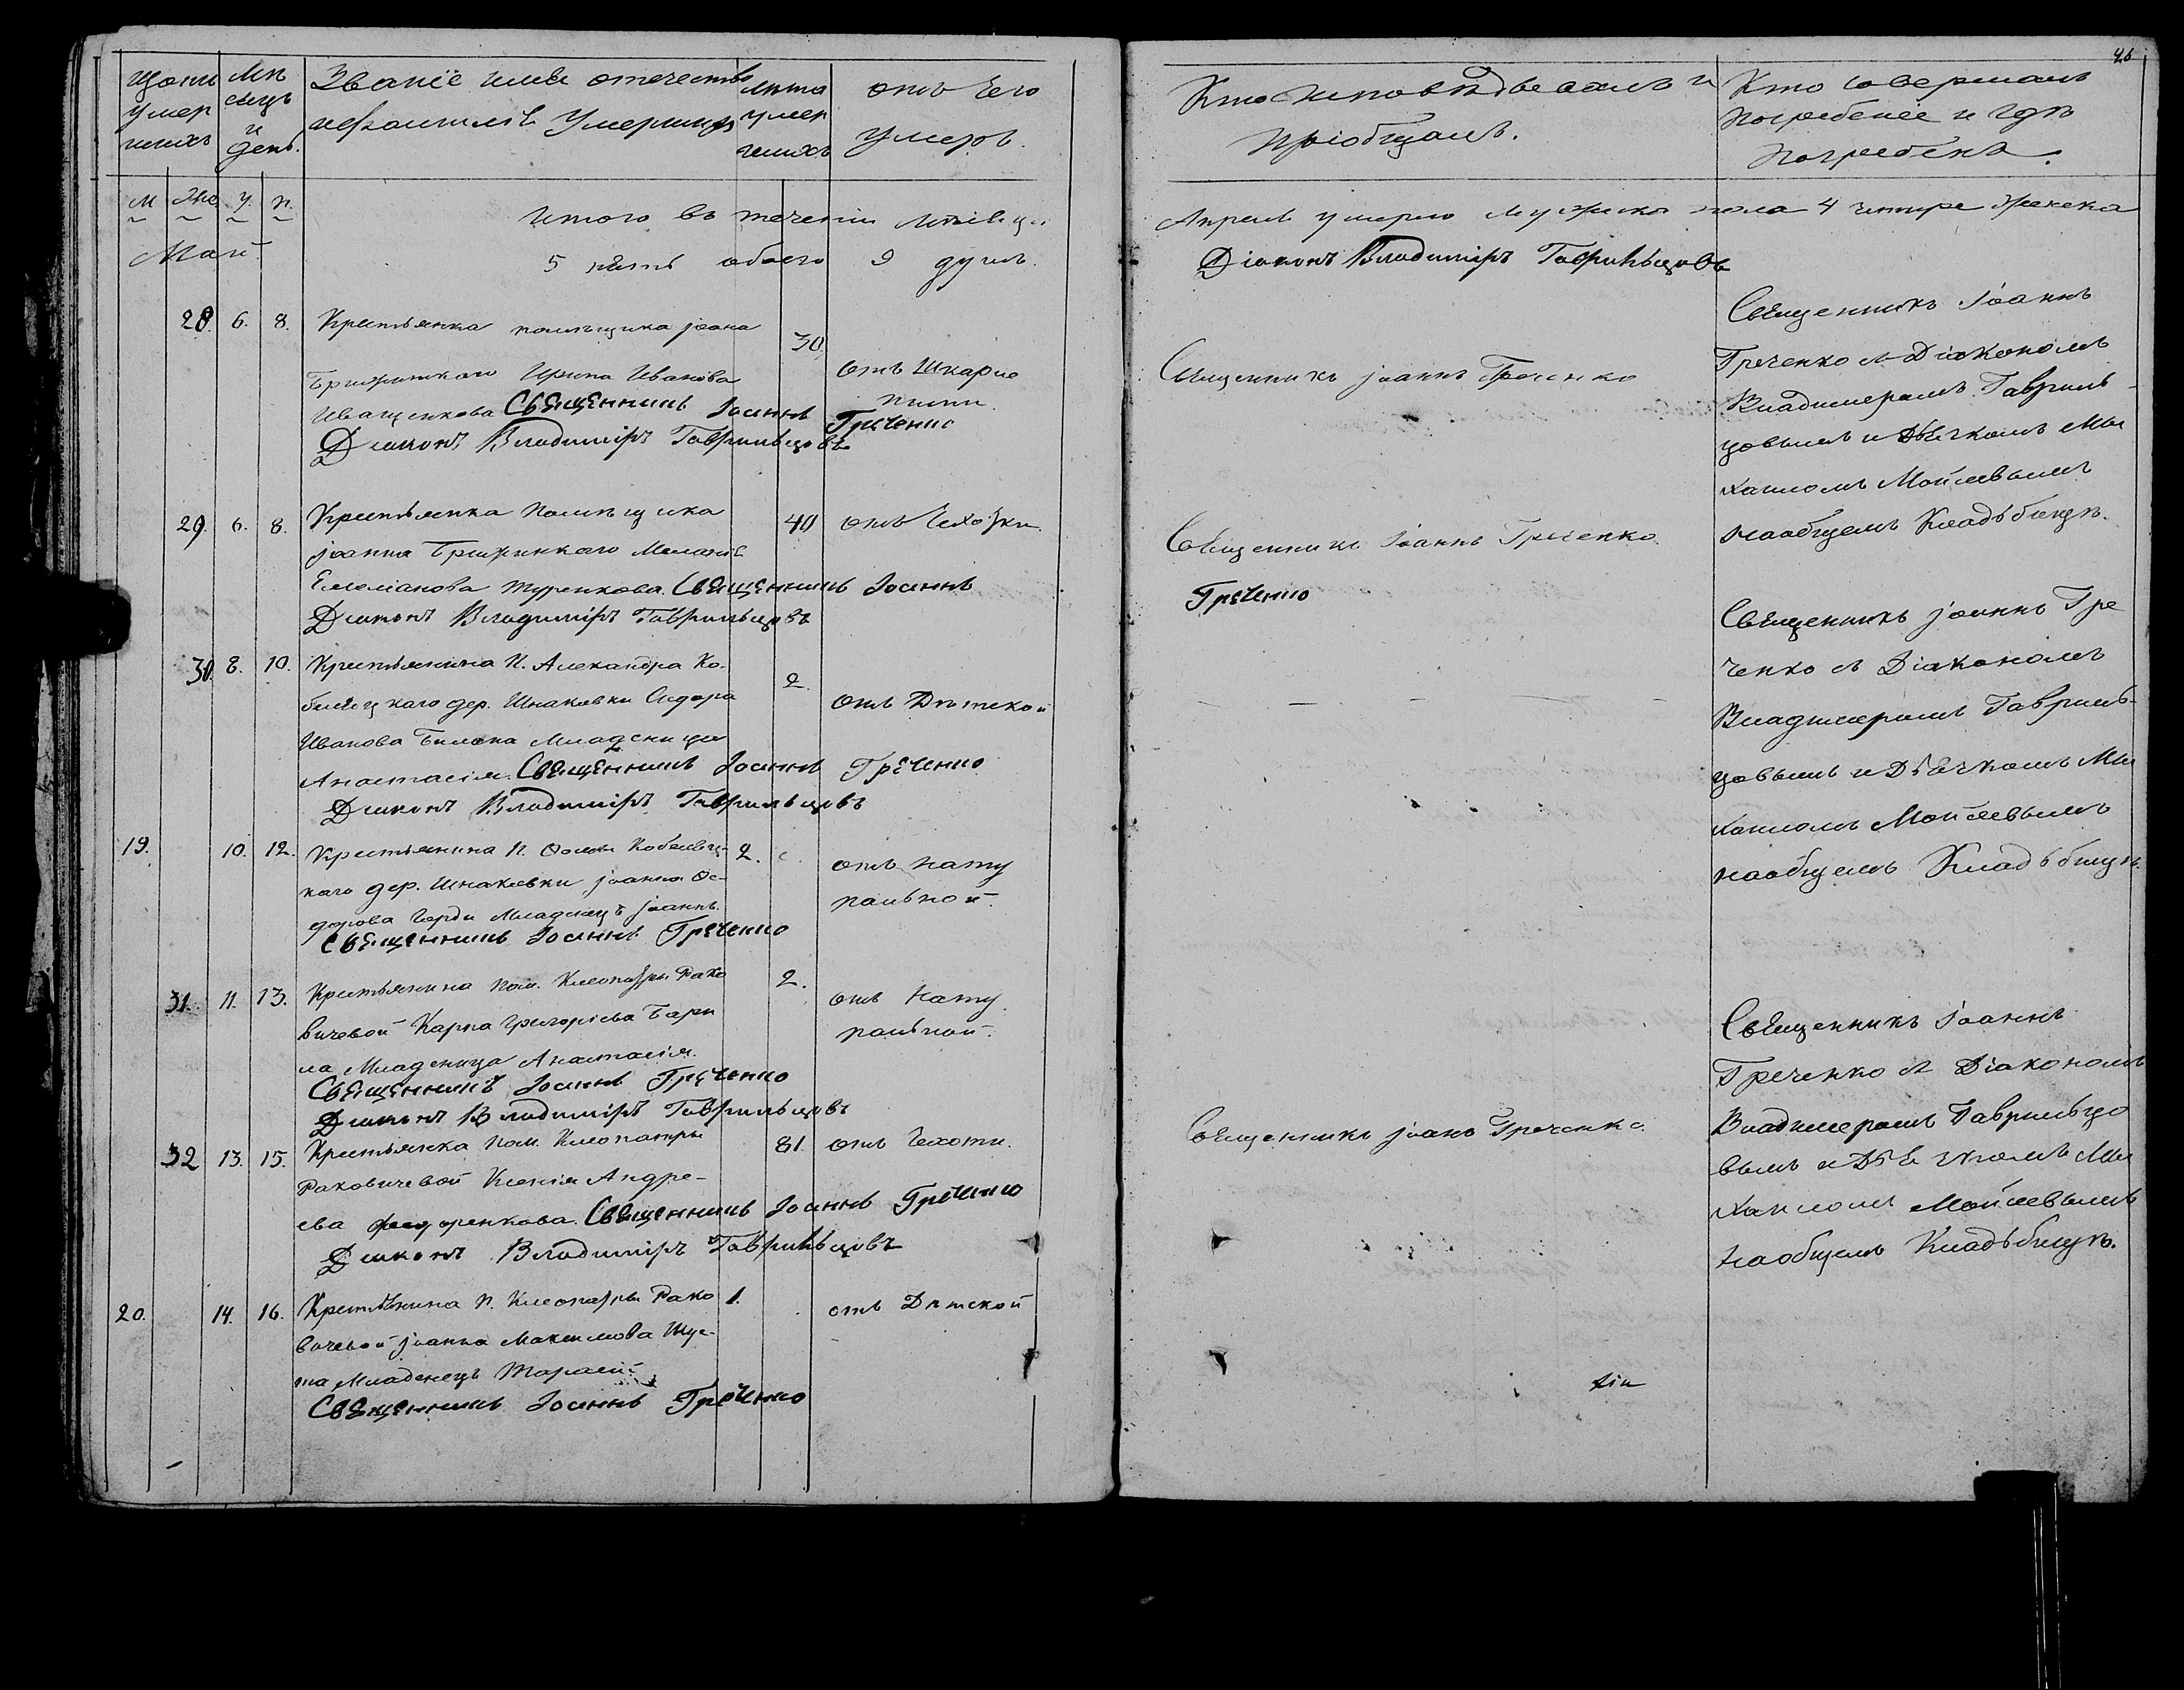 46
Щотъ умер шихъ
Мѣсяцъ и день.
Званіе имя отечество
и фамилія умершихъ
лѣта умер шихъ
отъ чего
умеръ.
Кто исповѣдывалъ и
пріобщалъ.
Кто совершалъ
погребеніе и гдѣ
погребенъ.
М Же. У. П.
Итого въ теченіи мѣсяца
Апреля умерло мужеска пола 4 четире женска
Май.
5 пять обоего 9 душъ.
Діаконъ Владиміръ Гаврильцовъ
28. 6. 8. Крестьянка помѣщика іоана 30
Ирина Иванова
Иващенкова Священникъ Іоаннъ Греченко
Діаконъ Владиміръ Гаврильцовъ
отъ Шкарле
тини.
Священникъ іоаннъ Греченко
Священникъ Іоаннъ
Греченко съ Діакономъ
Владимеромъ Гавриль-
цовымъ и Дьячкомъ Ми
хаиломъ Мойсевымъ
на общемъ Кладьбищѣ.
29. 6. 8. Крестьянка Помѣщика 40 отъ Чехотки
іоанна Меланія
Емеліанова Туренкова. Священникъ Іоаннъ
Діаконъ Владиміръ Гаврильцовъ
Священникъ Іоаннъ Греченко.
Греченко
30. 8. 10. Крестьянина П. Александра Ко- 2.
белецкаго дер. Шнаковки Сидора отъ Дѣтской
Иванова Билана Младеница
Анастасія. Священникъ Іоаннъ Греченко
Діаконъ Владиміръ Гаврильцовъ
Священикъ іоаннъ Гре
ченко съ Діакономъ
Владимеромъ Гавриль-
цовымъ и Дьячкомъ Ми
хаиломъ Мойсевымъ
на общемъ Кладьбищѣ.
19. 10. 12. Крестьянина П. Фомы Кобелец- 2. отъ Нату
каго дер. Шнаковки іоанна Фе- ральной.
дорова Младенецъ іоаннъ.
Священникъ Іоаннъ Греченко
31. 11. 13. Крестьянина Пом. Клеопатры Рако 2. отъ Нату
вичевой Карпа Григоріева ральной.
Младеница Анастасія.
Священникъ Іоаннъ Греченко
Діаконъ Владиміръ Гаврильцовъ
Священникъ Іоаннъ
Греченко съ Діакономъ
Владимеромъ Гаврильцо
вымъ и Дьячкомъ Ми
хаиломъ Мойсевымъ
на общемъ Кладьбищѣ.
32 13. 15. Крестьянка Пом. Клеопатры 81. отъ Чехотки.
Раковичевой Ксенія Андре-
ева Федоренкова. Священникъ Іоаннъ Греченко
Діаконъ Владиміръ Гаврильцовъ
Священникъ іоанъ Греченко.
20. 14. 16. Крестьянина П. Клеопатры Рако 1. отъ Дѣтской
вичевой іоанна Максимова Шус-
та Младенецъ Тарасій
Священникъ Іоаннъ Греченко